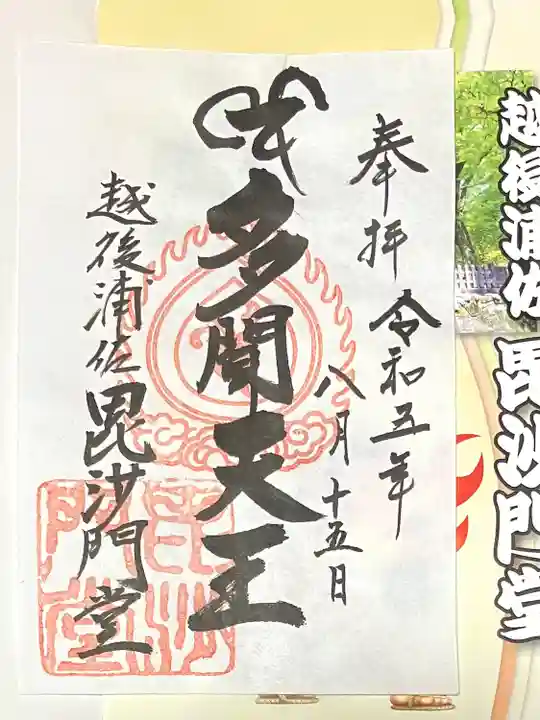 越後浦佐 毘沙門堂
奉拝 令和五年
八月十五日
多聞天王
越後浦佐毘沙門堂